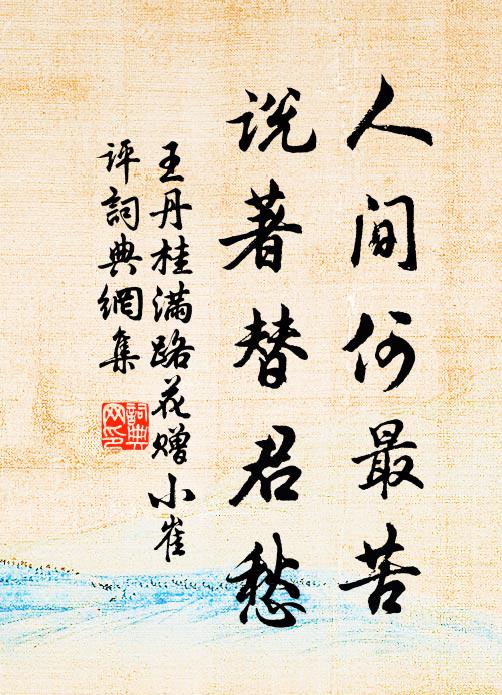 人间何最苦
说著替君愁
王丹桂满路花赠小崔
评詞典網集
詞典网印